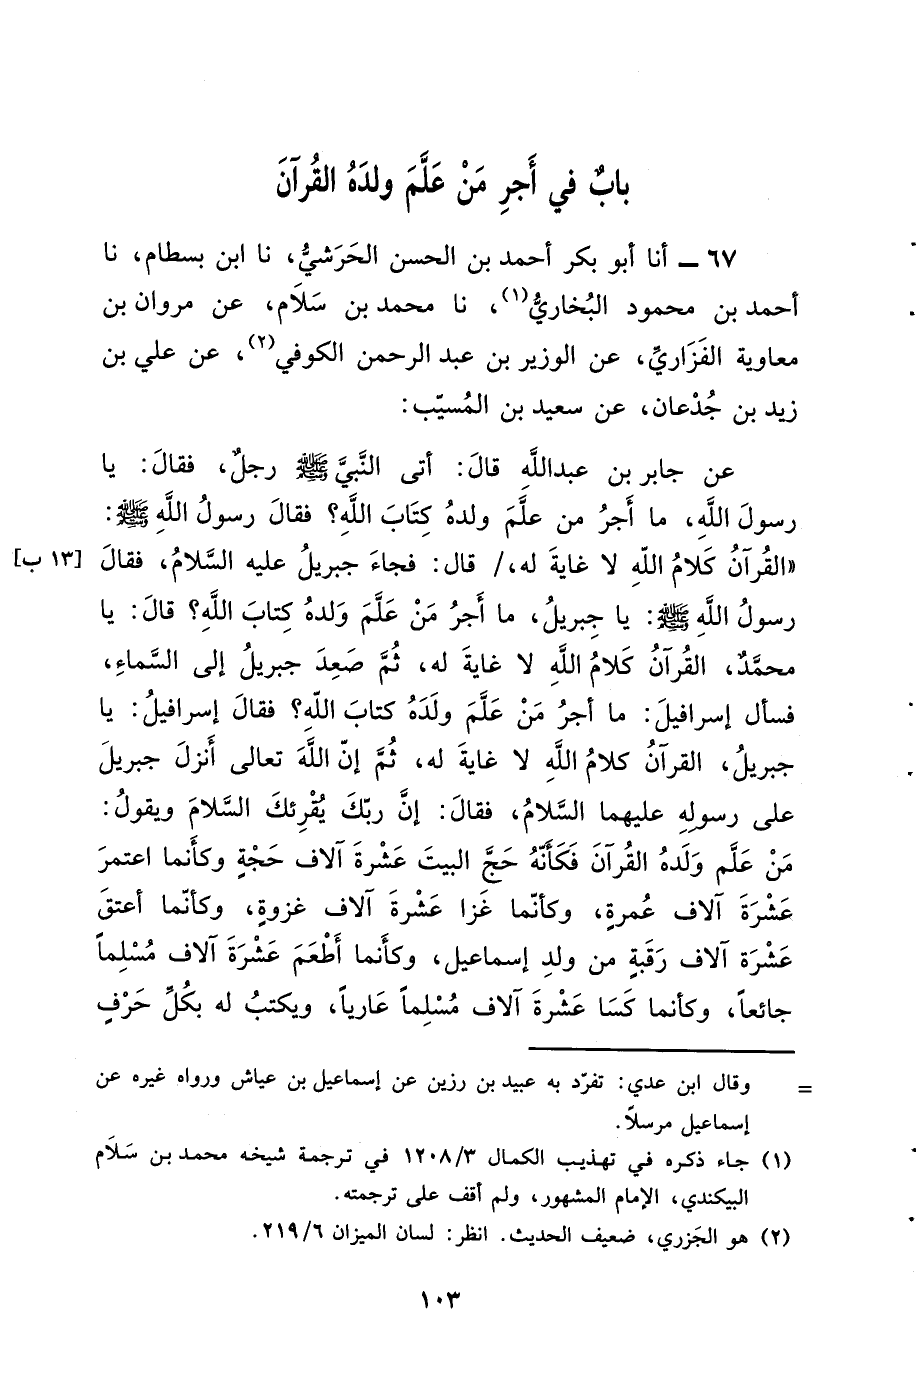 بابٌ في أَجرِ مَنْ عَلَّمَ ولدَهُ القُرآنَ
٦٧ ــ أنا أبو بكر أحمد بن الحسن الحَرَشيُّ، نا ابن بسطام، نا
أحمد بن محمود البُخاريُّ(١)، نا محمد بن سَلَام، عن مروان بن
معاوية الفَزَاريِّ، عن الوزير بن عبد الرحمن الكوفي(٢)، عن علي بن
زيد بن جُدْعان، عن سعيد بن المُسيّب:
عن جابر بن عبداللَّهِ قالَ: أتى النَّبيَّ ﷺ رجلٌ، فقالَ: يا
رسولَ اللَّهِ، ما أَجرُ من علَّمَ ولدهُ كِتَابَ اللَّهِ؟ فقالَ رسولُ اللَّهِ ﷺ:
«القُرآنُ كَلامُ اللّهِ لا غايةَ له،/ قال: فجاءَ جبريلُ عليه السَّلامُ، فقالَ [١٣ ب]
رسولُ اللَّهِ ﷺ: يا جِبريلُ، ما أَجرُ مَنْ عَلَّمَ وَلدهُ كِتابَ اللَّهِ؟ قالَ: يا
محمَّدٌ، القُرآنُ كَلامُ اللَّهِ لا غايةَ له، ثُمَّ صَعِدَ جبريلُ إلى السَّماءِ،
فسأل إسرافيلَ: ما أجرُ مَنْ عَلَّمَ ولَدَهُ كتابَ اللّهِ؟ فقالَ إسرافيلُ: يا
جبريلُ، القرآنُ كلامُ اللَّهِ لا غايةَ له، ثُمَّ إنّ اللَّهَ تعالى أَنزلَ جبريلَ
على رسولِهِ عليهما السَّلامُ، فقالَ: إنَّ ربّكَ يُقْرِئكَ السَّلامَ ويقولُ:
مَنْ عَلَّم وَلَدهُ القُرآنَ فَكَأَنّهُ حَجَّ البيتَ عَشْرةَ آلاف حَجْةٍ وكأَنما اعتمرَ
عَشْرَةَ آلاف عُمرةٍ، وكأنّما غَزا عَشْرةَ آلاف غزوةٍ، وكأنّما أعتقَ
عَشْرَة آلاف رَقَبةٍ من ولدِ إسماعيل، وكأَنما أَطْعَمَ عَشْرَةَ آلاف مُسْلِماً
جائعاً، وكأنما كَسَا عَشْرةَ آلاف مُسْلِماً عَارياً، ويكتبُ له بكُلِّ حَرْفٍ
= وقال ابن عدي: تفرّد به عبيد بن رزين عن إسماعيل بن عياش ورواه غيره عن
إسماعيل مرسلاً.
(١) جاء ذكره في تهذيب الكمال ١٢٠٨/٣ في ترجمة شيخه محمد بن سَلَام
البيكندي، الإمام المشهور، ولم أقف على ترجمته.
(٢) هو الجَزري، ضعيف الحديث. انظر: لسان الميزان ٢١٩/٦.
١٠٣